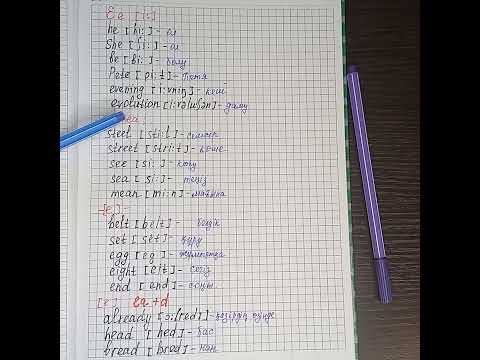 Ee [i:]
he [hi:] - ол
She [ʃi:] - ол
be [bi:] - болу
Pete [pi:t] - Петя
evening [i:vniŋ] - кеш
evolution [i:vəluʃən] - даму
ea:
steel [sti:l] -
street [stri:t] - көше
see [si:] - көру
sea [si:] - теңіз
mean [mi:n] - мағына
[e] -
belt [belt] - белдік
set [set] - құру
egg [eg] - жұмыртқа
eight [eit] - сегіз
end [end] - соңы
[e] ea+d
already [ɔ:lred]
head [hed] - бас
bread [bred] - нан